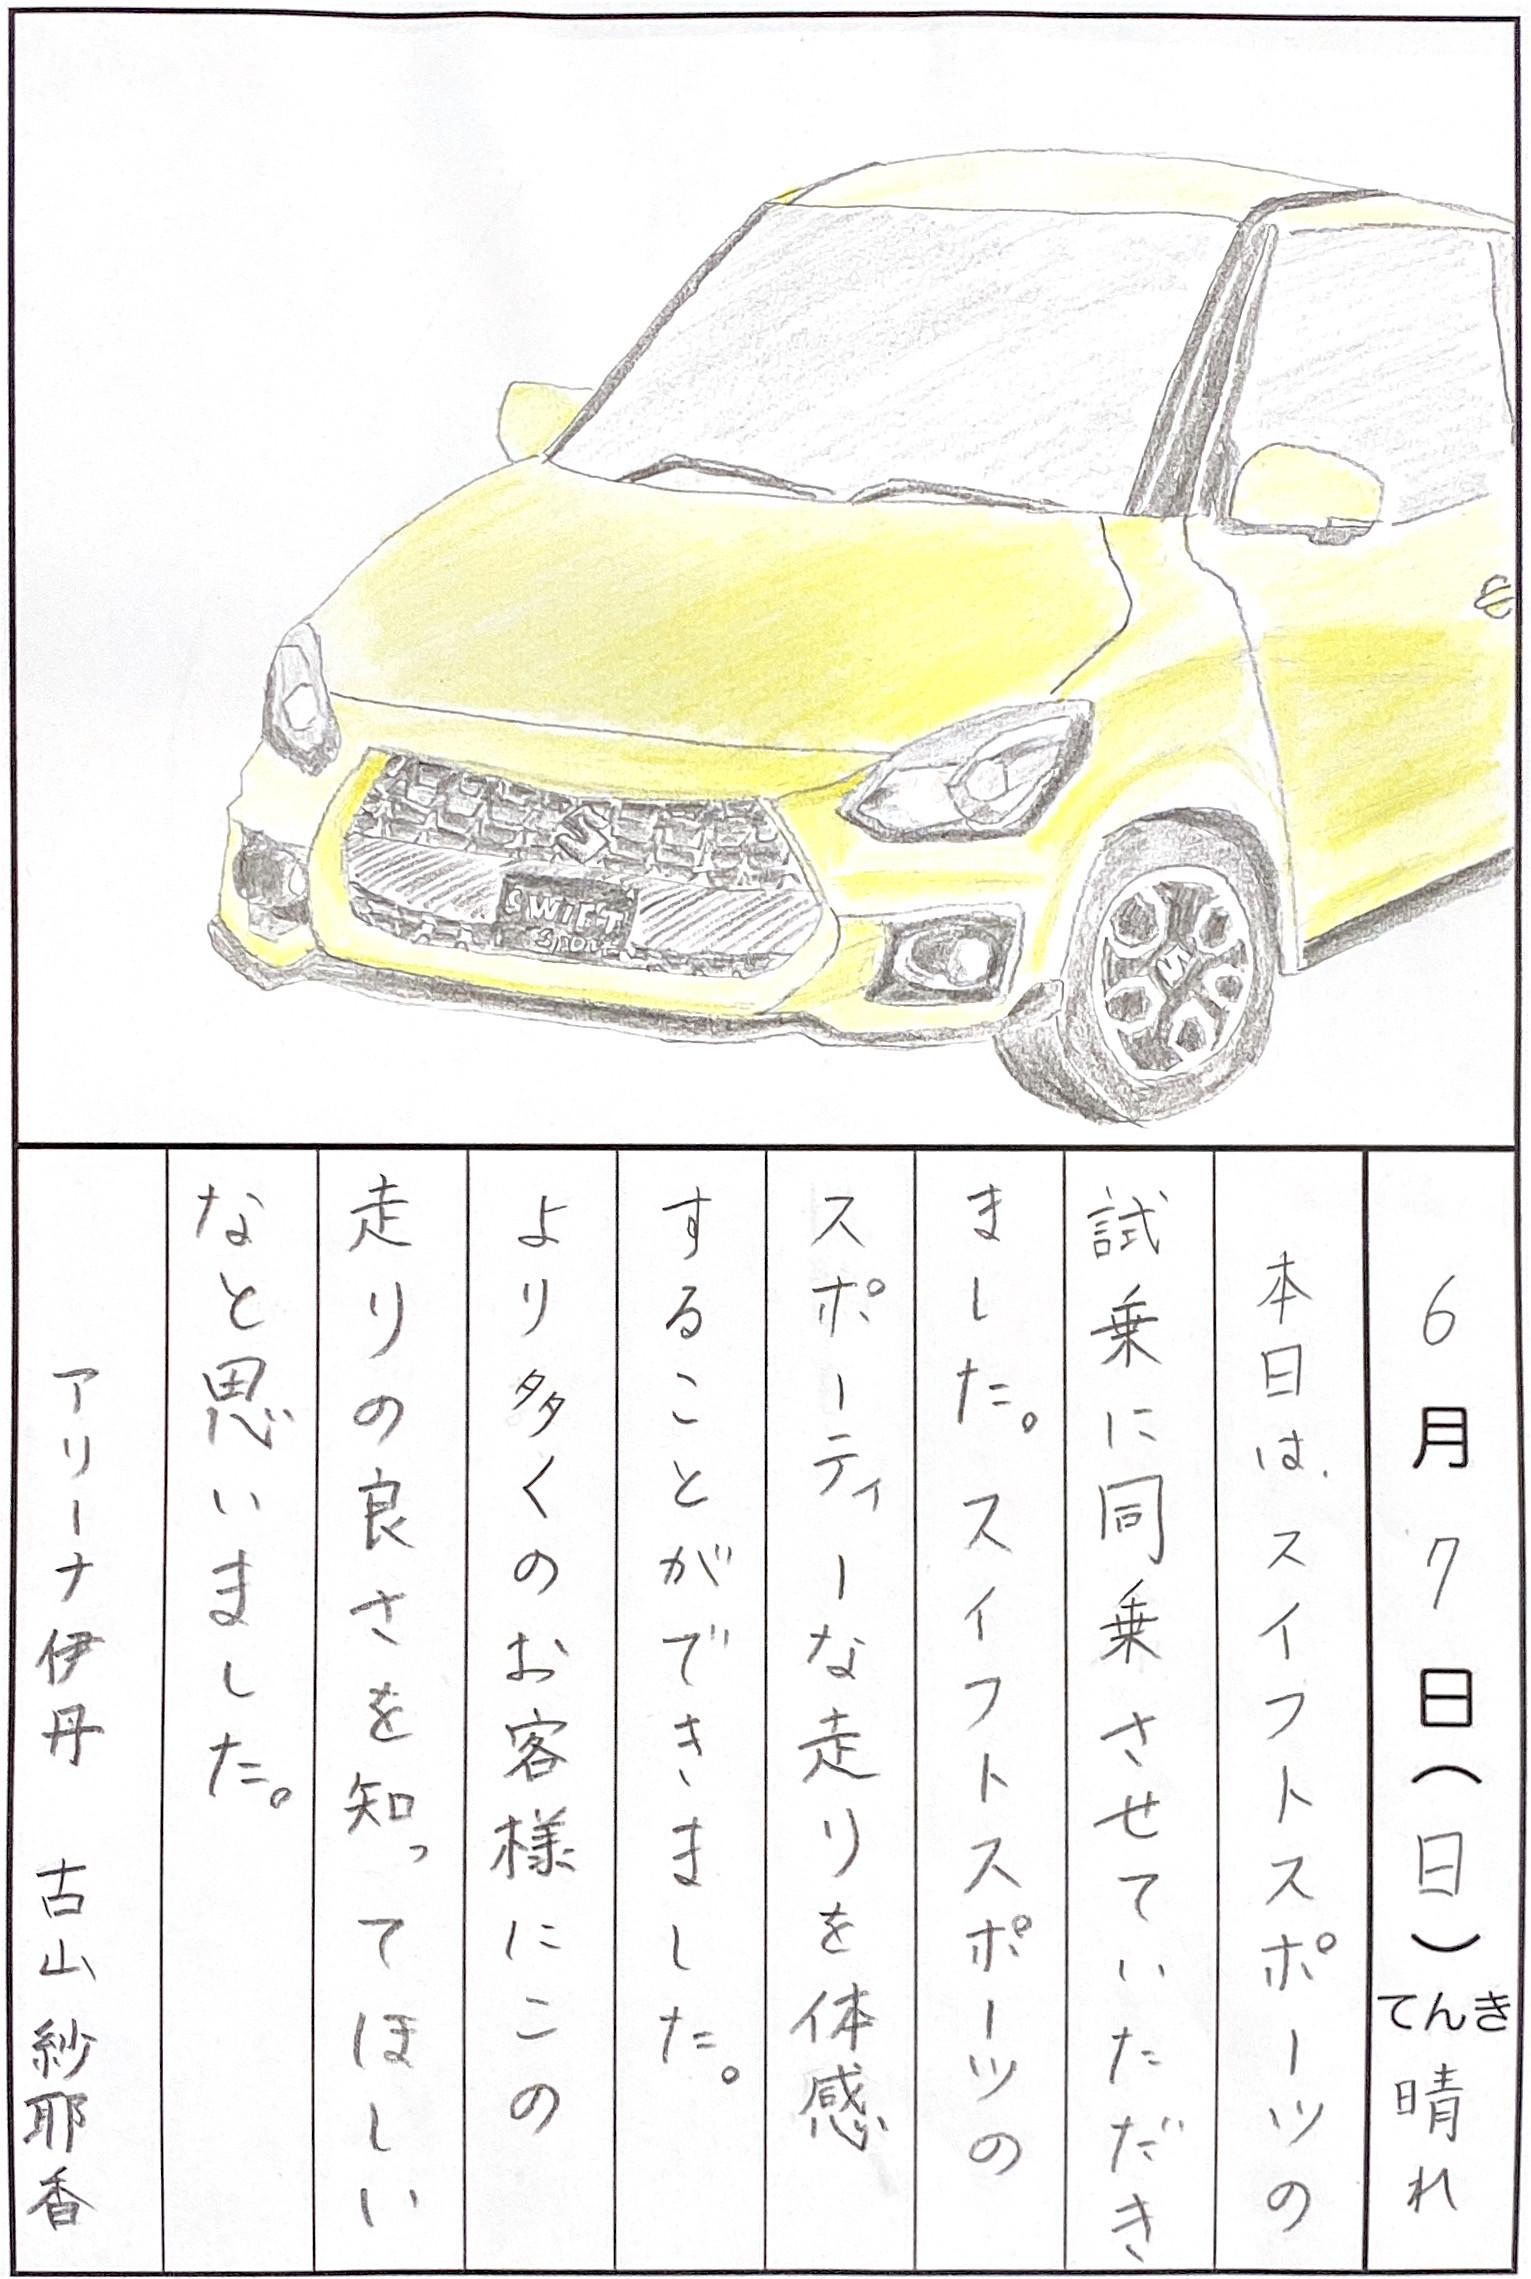 SWIFT
Sport
6月7日(日)てんき晴れ
本日は、スイフトスポーツの
試乗に同乗させていただき
ました。スイフトスポーツの
スポーティーな走りを体感
することができました。
より多くのお客様にこの
走りの良さを知ってほしい
なと思いました。
アリーナ伊丹 古山紗耶香